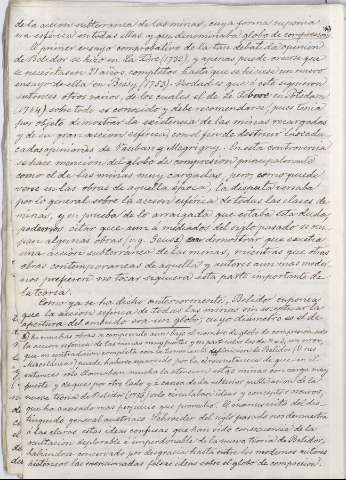 de la acción subterranea de las minas, cuya forma suponia
era esferica en todas ellas y que denominaba globo de compresion
El primer ensayo comprobativo de la tan debatida opinion
de Belidor se hizo en La Fère (1732), y apenas puede creerse que
se necesitasen 21 años completos hasta que se hiciese un nuevo
ensayo de ella en Bisy (1753). Verdad es que á este siguieron
entonces otros varios, de los cuales el de en Potsdam
(1754) sobre todo es conocido y debe recomendarse, pues tenia
por objeto demostrar la existencia de las minas recargadas
y de su gran accion esferica con el fin de destruir las
opiniones de Vauban y Megrigny. En esta controversia
se hace mencion del globo de compresion principalmente
como el de las minas muy cargadas, pero, como puede
verse en las obras de aquella época, la disputa versaba
por lo general sobre la accion esferica de todas las clases de
minas, y en prueba de lo arraigada que estaba esta duda,
podemos citar que aun á mediados del siglo pasado se ocu-
pan algunas obras (v.g. Geuss) en demostrar que existia
una accion subterranea de las minas, mientras que otras
obras contemporaneas de aquella y autores aun mas moder-
nos prefieren no tocar siquiera esta parte importante de
la teoria.
Como ya se ha dicho anteriormente, Belidor suponia
que la acción esferica de todas las minas sin esceptuar la
apertura del embudo era un globo, cuyo diametro es el de
En muchas obras se comprende aun bajo el nombre de globo de compresion solo
la accion esferica de las minas muy fuertes y en particular los de
que en contradiccion completa con la teoria y definicion de Belidor
puede haberse aparecido por la circunstancia de que en el
entonces solo llamaban mucho la atencion estas minas con carga muy
fuerte y de que por otro lado y á causa de la ulterior publicacion de la
nueva teoria de Belidor (1756) solo circulaban ideas y conceptos oscuros
que han causado mas perjuicios que provecho. El comunicado del dis-
tinguido general austriaco del siglo pasado nos demuestra
á las claras estas ideas confusas que han sido consecuencia de la
ocultacion deplorable é imperdonable de la nueva teoria de Belidor,
habiendose conservado por desgracia hasta entre los modernos autores
historicos las mencionadas falsas ideas sobre el globo de compresion.